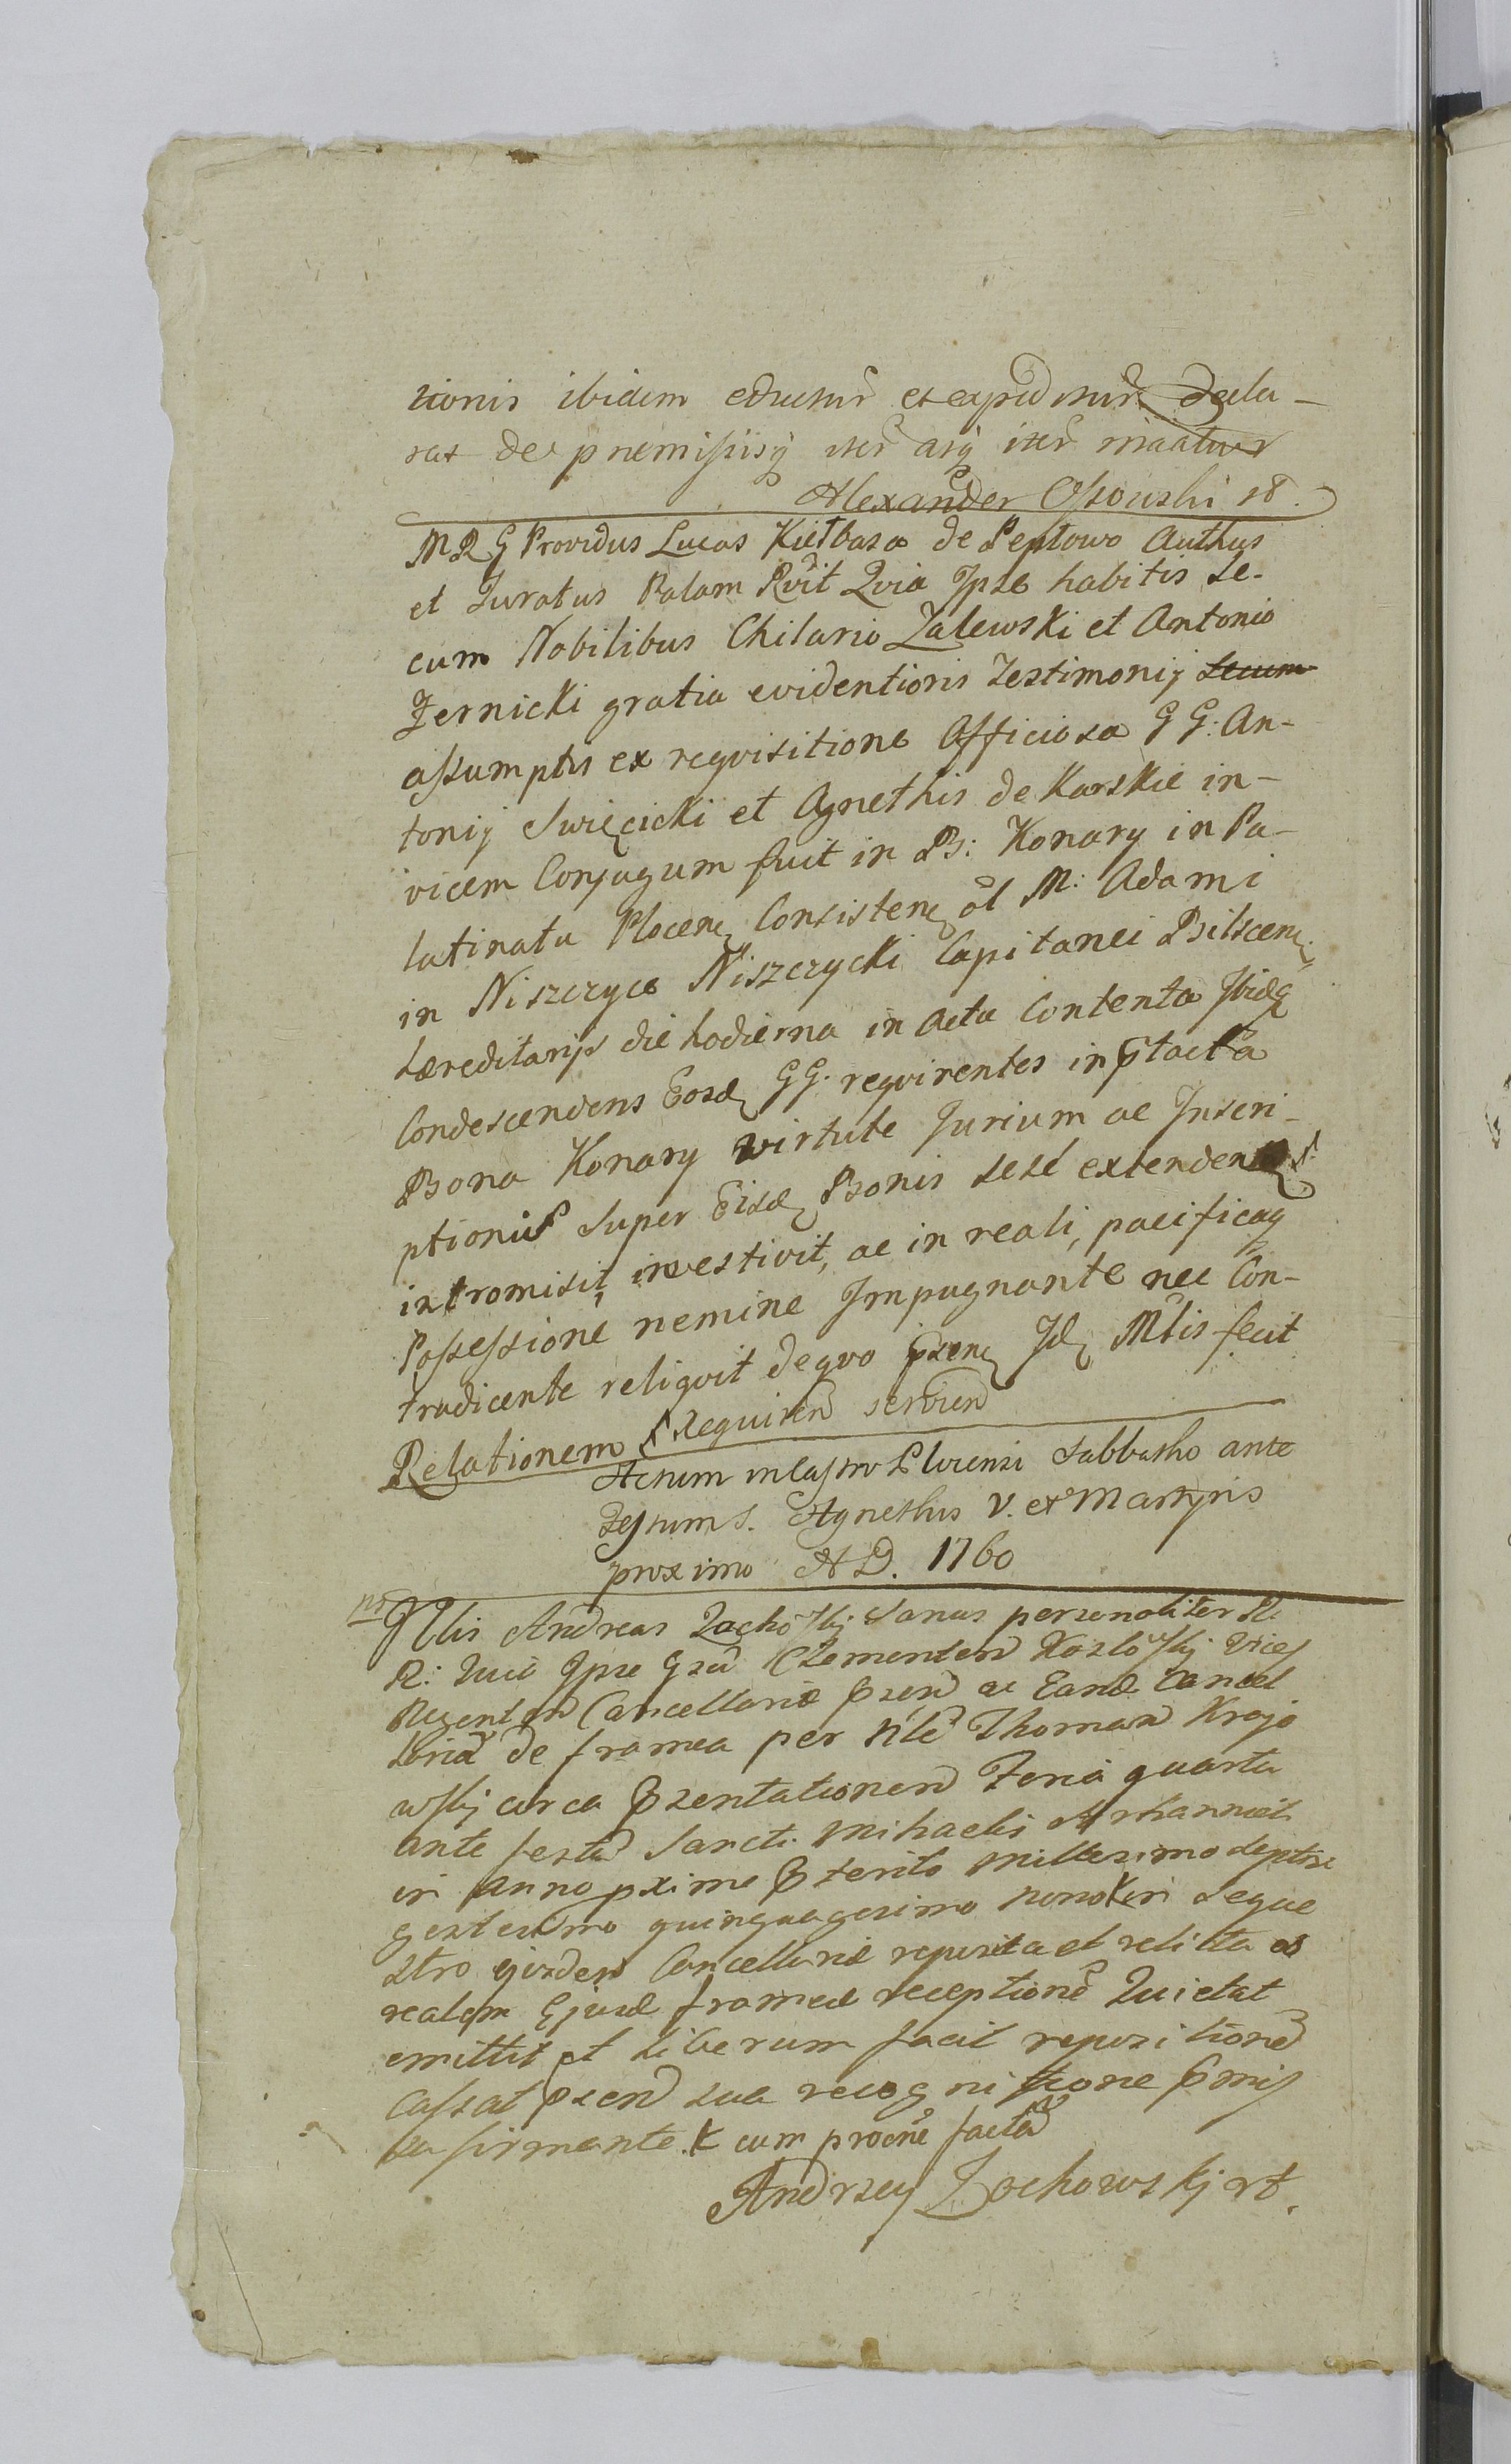 tionis ibidem educitur et expeditur Decla-
rat de præmissisq
Alexander Ossowski
MRG Providus Lucas Kiełbasa de Peptowo Authus
et Juratus Palam Rvit Qvia Ipse habitis se-
cum Nobilibus Chilario Zalewski et Antonio
Zernicki gratia evidentioris Testimonij secum
assumptis ex reqvisitione Officiosa GG: An-
tonij Swięcicki et Agnethis de Karskie in-
vicem Conjugum fuit in B: Konary in Pa-
latinatu Plocen Consisten ol M: Adami
in Niszczyce Niszczycki Capitanei Bilscen
hæreditarys die hodierna in Acta Contenta Ibidq
Condescendens Eosd GG. reqvirentes in ptacta
Bona Konary virtute Jurium ac Inscri-
ptionis Super Eisd Bonis sese extenden
intromisit, investivit, ac in reali, pacificaq
Possessione nemine Impugnante nec Con-
tradicente reliqvit deqvo psens Id Mtlis fecit
Relationem Requiren servien
Actum in Castro Plocensi Sabbatho ante
Festum S. Agnethis V. et Martyris
proximo A D. 1760
Nblis Andreas Zocho sky Sanus personaliter Pl.
R: Quia Ipse Gsu Clementem Kozlo sky Vices
Regentem Cancellariæ psen ac Eand Cancel
lariæ de framea per Nle Thomam Krajo
wskj circa psentationem Feria quarta
ante festu Sancti Mihaelis Arhannieli
in anno pxime pterito millesimo septin
gentesimo quinquagesimo nono in seque
stro ejusdem Cancellariæ reposita et relicta ob
realem Ejusd frameæ receptione Quietat
emittit et liberum facit repositione
Cassat psen sua recognitione pmis
sa firmante. cum procne facta
Andrzey Zochowskj